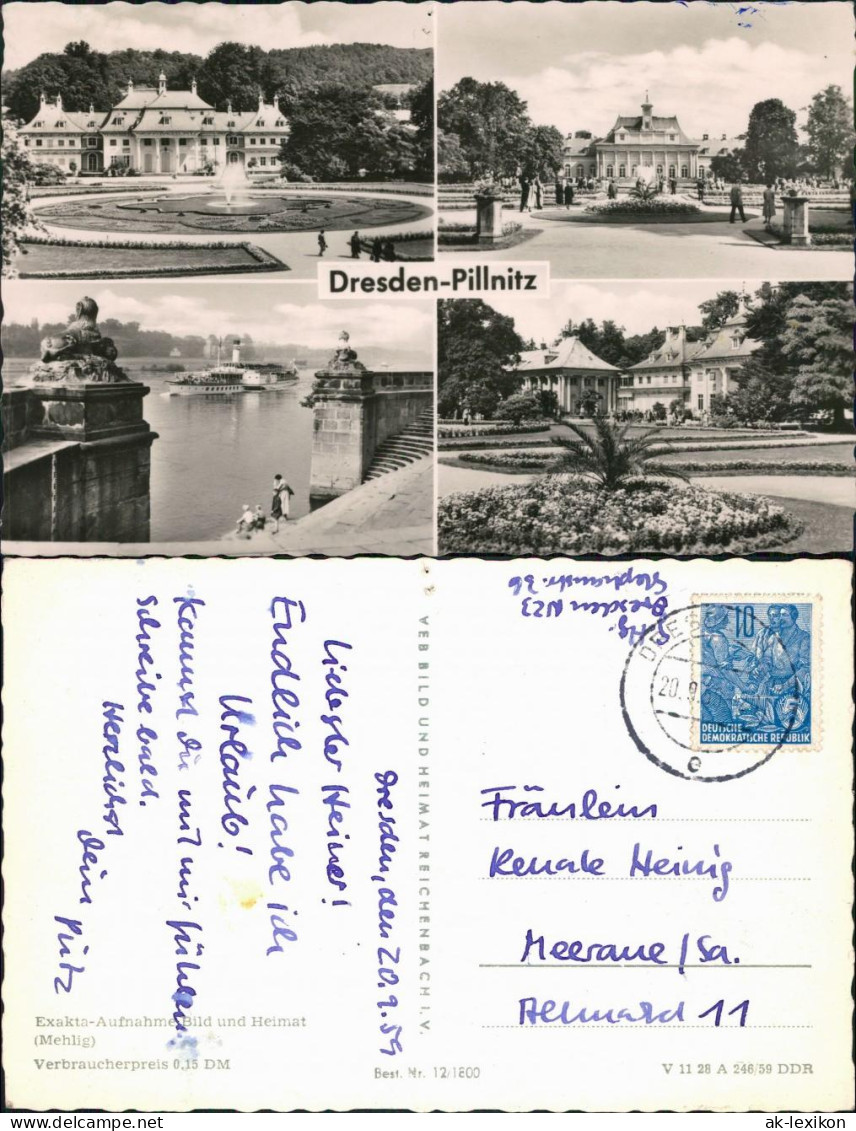 Dresden-Pillnitz
Dresden, den 20.9.59
Liebster Heiner!
Endlich habe ich
Urlaub!
Kannst du mit mir fühlen.
Schreibe bald.
Herzlichst
Dein
Dresden N23
VEB BILD UND HEIMAT REICHENBACH I. V.
10
DEUTSCHE
DEMOKRATISCHE REPUBLIK
20.9.
Fräulein
Renate Heinig
Meerane/Sa.
Altmarkt 11
Exakta-Aufnahme Bild und Heimat
(Mehlig)
Verbraucherpreis 0,15 DM
Best. Nr. 12/1800
V 11 28 A 246/59 DDR
ak-lexikon.com